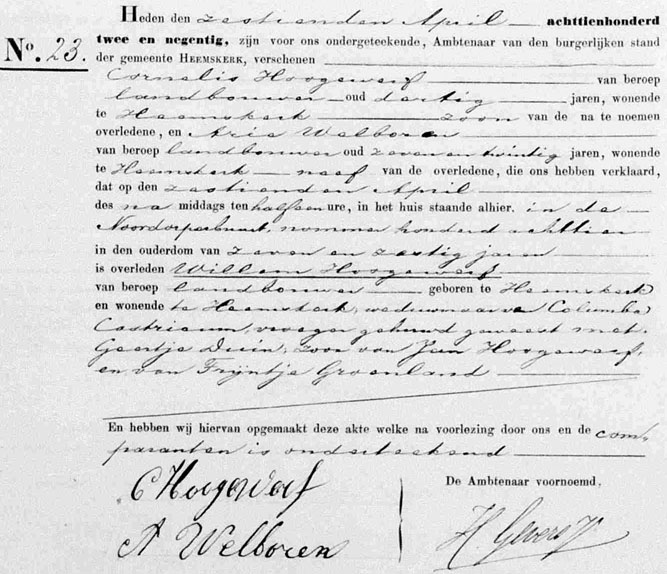 Heden den zestienden April achttienhonderd
No. 23. twee en negentig, zijn voor ons ondergeteekende, Ambtenaar van den burgerlijken stand
der gemeente HEEMSKERK, verschenen
Cornelis Hoogewerf van beroep
landbouwer oud dertig jaren, wonende
te Heemskerk zoon van de na te noemen
overledene, en Arie Welboren
van beroep landbouwer oud zeven en twintig jaren, wonende
te Heemskerk neef van de overledene, die ons hebben verklaard,
dat op den zestienden April
des na middags ten half een ure, in het huis staande alhier. in de
Noorddorperbuurt, nommer honderd achttien
in den ouderdom van zeven en zestig jaren
is overleden Willem Hoogewerf
van beroep landbouwer geboren te Heemskerk
en wonende te Heemskerk, weduwnaar van Columba
Castricum, vroeger gehuwd geweest met
Geertje Duin, zoon van Jan Hoogewerf,
en van Trijntje Groenland
En hebben wij hiervan opgemaakt deze akte welke na voorlezing door ons en de com-
paranten is onderteekend
C Hoogewerf
De Ambtenaar voornoemd,
A Welboren
H Gevers